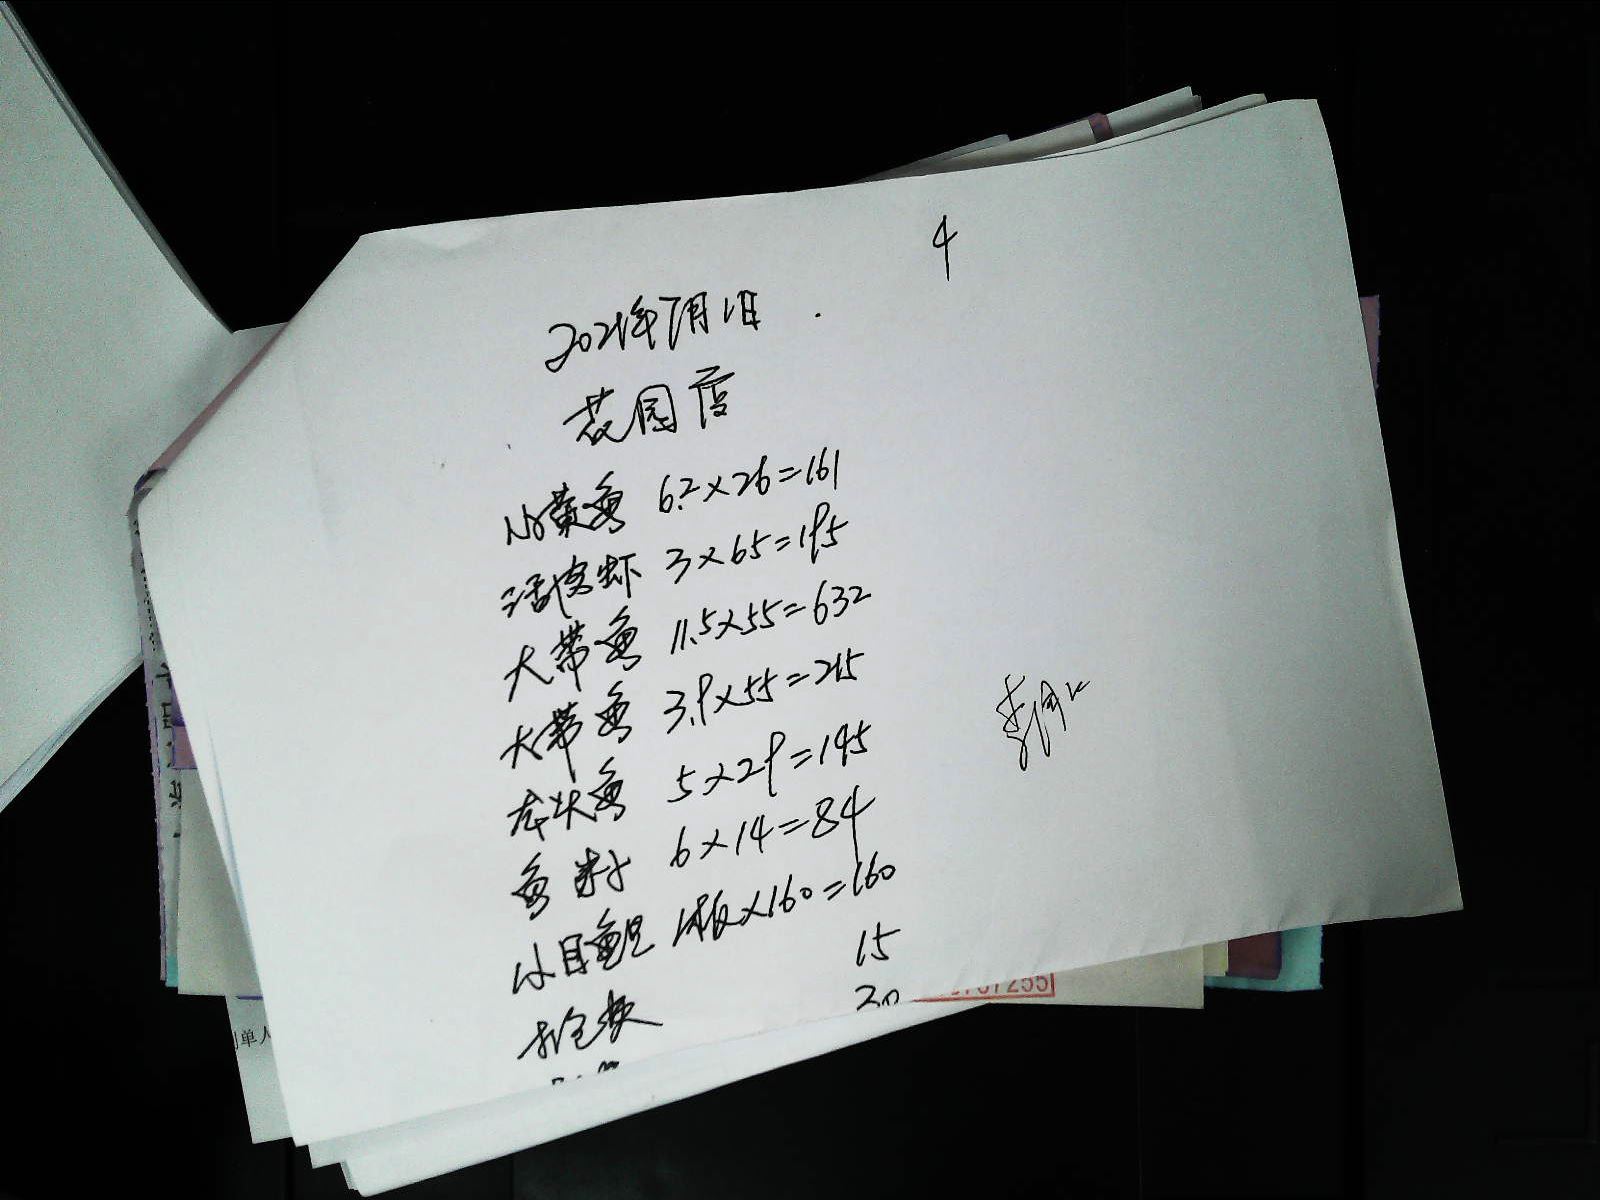 4
2021年7月1日
花园店
小黄鱼 6.2×26=161
活虾 3×65=195
大带鱼 11.5×55=632
大带鱼 3.9×55=215
鱼 5×29=145
鱼料 6×14=84
小目鱼旦 1板×160=160
15
30
07255
单人